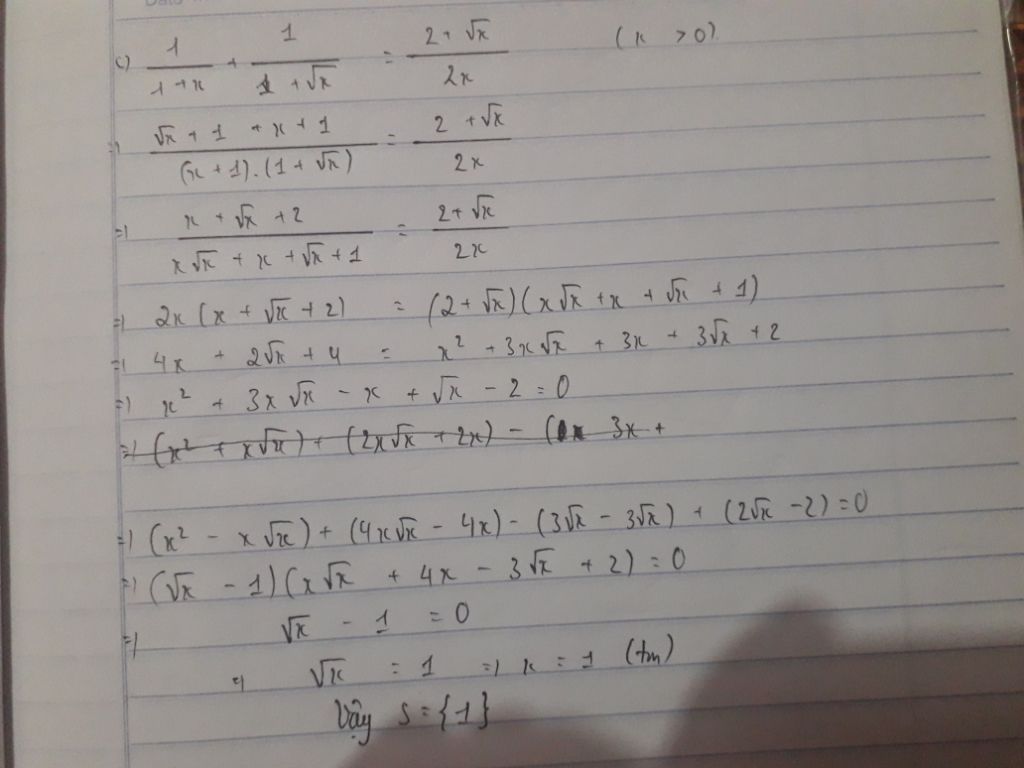 c) 1/(1+x) + 1/(1+√x) = (2+√x)/(2x) (x > 0)
=) (√x + 1 + x + 1)/((x+1).(1+√x)) = (2+√x)/(2x)
=) (x + √x + 2)/(x√x + x + √x + 1) = (2+√x)/(2x)
=) 2x(x + √x + 2) = (2+√x)(x√x + x + √x + 1)
=) 4x + 2√x + 4 = x² + 3x√x + 3x + 3√x + 2
=) x² + 3x√x - x + √x - 2 = 0
=) (x² + x√x) + (2x√x + 2x) - ( 3x +
=) (x² - x√x) + (4x√x - 4x) - (3√x - 3√x) + (2√x - 2) = 0
=) (√x - 1)(x√x + 4x - 3√x + 2) = 0
=) √x - 1 = 0
=) √x = 1 =) x = 1 (tm)
Vậy S = {1}